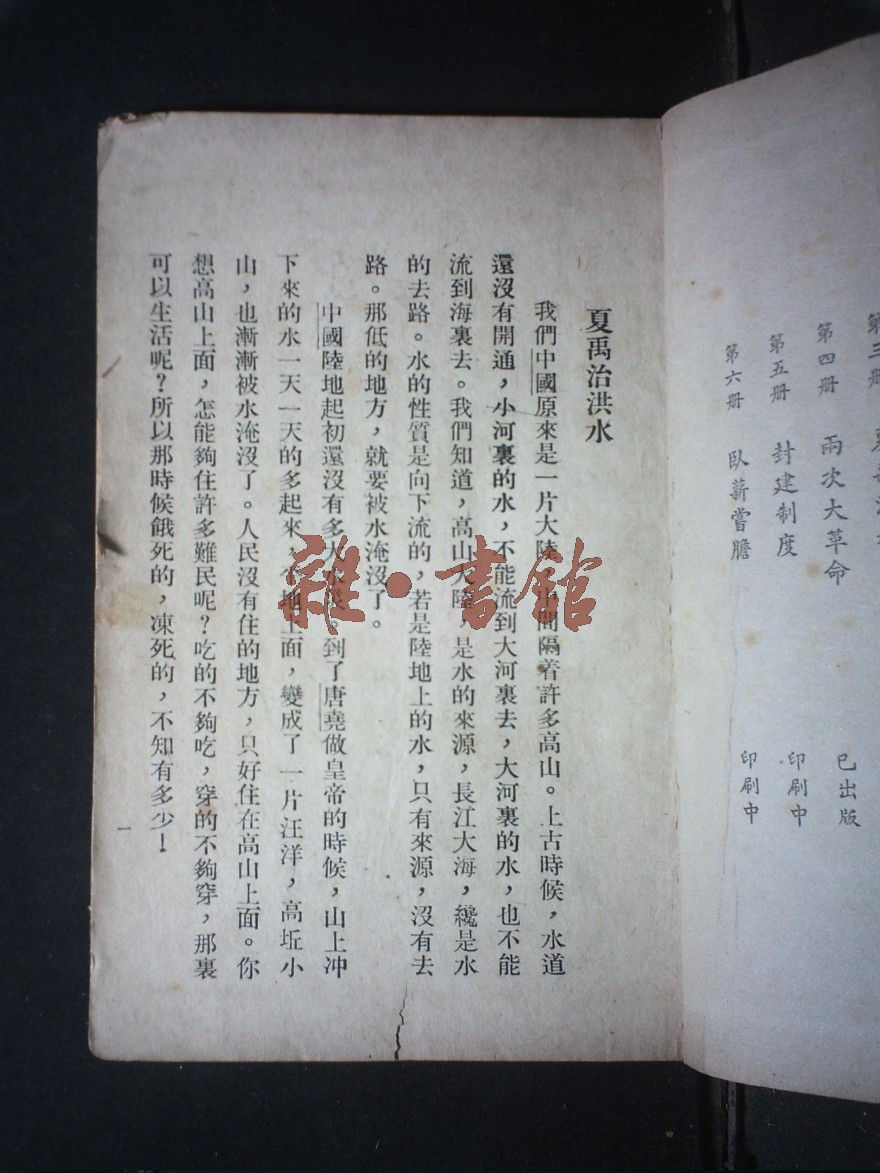 第三册
第四册 兩次大革命 已出版
第五册 封建制度 印刷中
第六册 臥薪嘗膽 印刷中
夏禹治洪水
我們中國原來是一片大陸,中間隔着許多高山。上古時候,水道
還沒有開通,小河裏的水,不能流到大河裏去,大河裏的水,也不能
流到海裏去。我們知道,高山大陸,是水的來源,長江大海,纔是水
的去路。水的性質是向下流的,若是陸地上的水,只有來源,沒有去
路。那低的地方,就要被水淹沒了。
中國陸地起初還沒有多大水災。到了唐堯做皇帝的時候,山上沖
下來的水一天一天的多起來,平地上面,變成了一片汪洋,高坵小
山,也漸漸被水淹沒了。人民沒有住的地方,只好住在高山上面。你
想高山上面,怎能夠住許多難民呢?吃的不夠吃,穿的不夠穿,那裏
可以生活呢?所以那時候餓死的,凍死的,不知有多少!
一
雜·書館